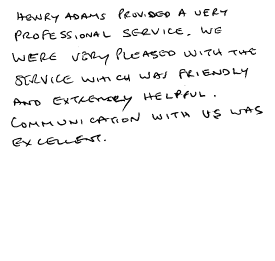 HENRY ADAMS PROVIDED A VERY
PROFESSIONAL SERVICE. WE
WERE VERY PLEASED WITH THE
SERVICE WHICH WAS FRIENDLY
AND EXTREMELY HELPFUL.
COMMUNICATION WITH US WAS
EXCELLENT.